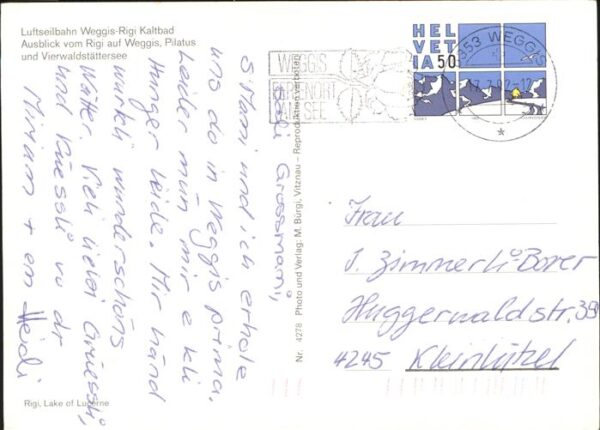 Luftseilbahn Weggis-Rigi Kaltbad
Ausblick vom Rigi auf Weggis, Pilatus
und Vierwaldstättersee
HEL
VET
IA 50
6353 WEGGIS
WEGGIS
AM SEE
Grossmami,
S Mami und ich erhole
uns do in Weggis prima.
Leider mün mir e kli
Hunger leide. Mir händ
würkli wunderschöns
Wätter. Vieli liebi Grüessli,
und Küessli vo dr
Miriam + em Heidi
Nr. 4278 Photo und Verlag: M. Bürgi, Vitznau – Reproduktion verboten
Frau
J. Zimmerli-Borer
Huggerwaldstr. 39
4245 Kleinlützel
Rigi, Lake of Lucerne